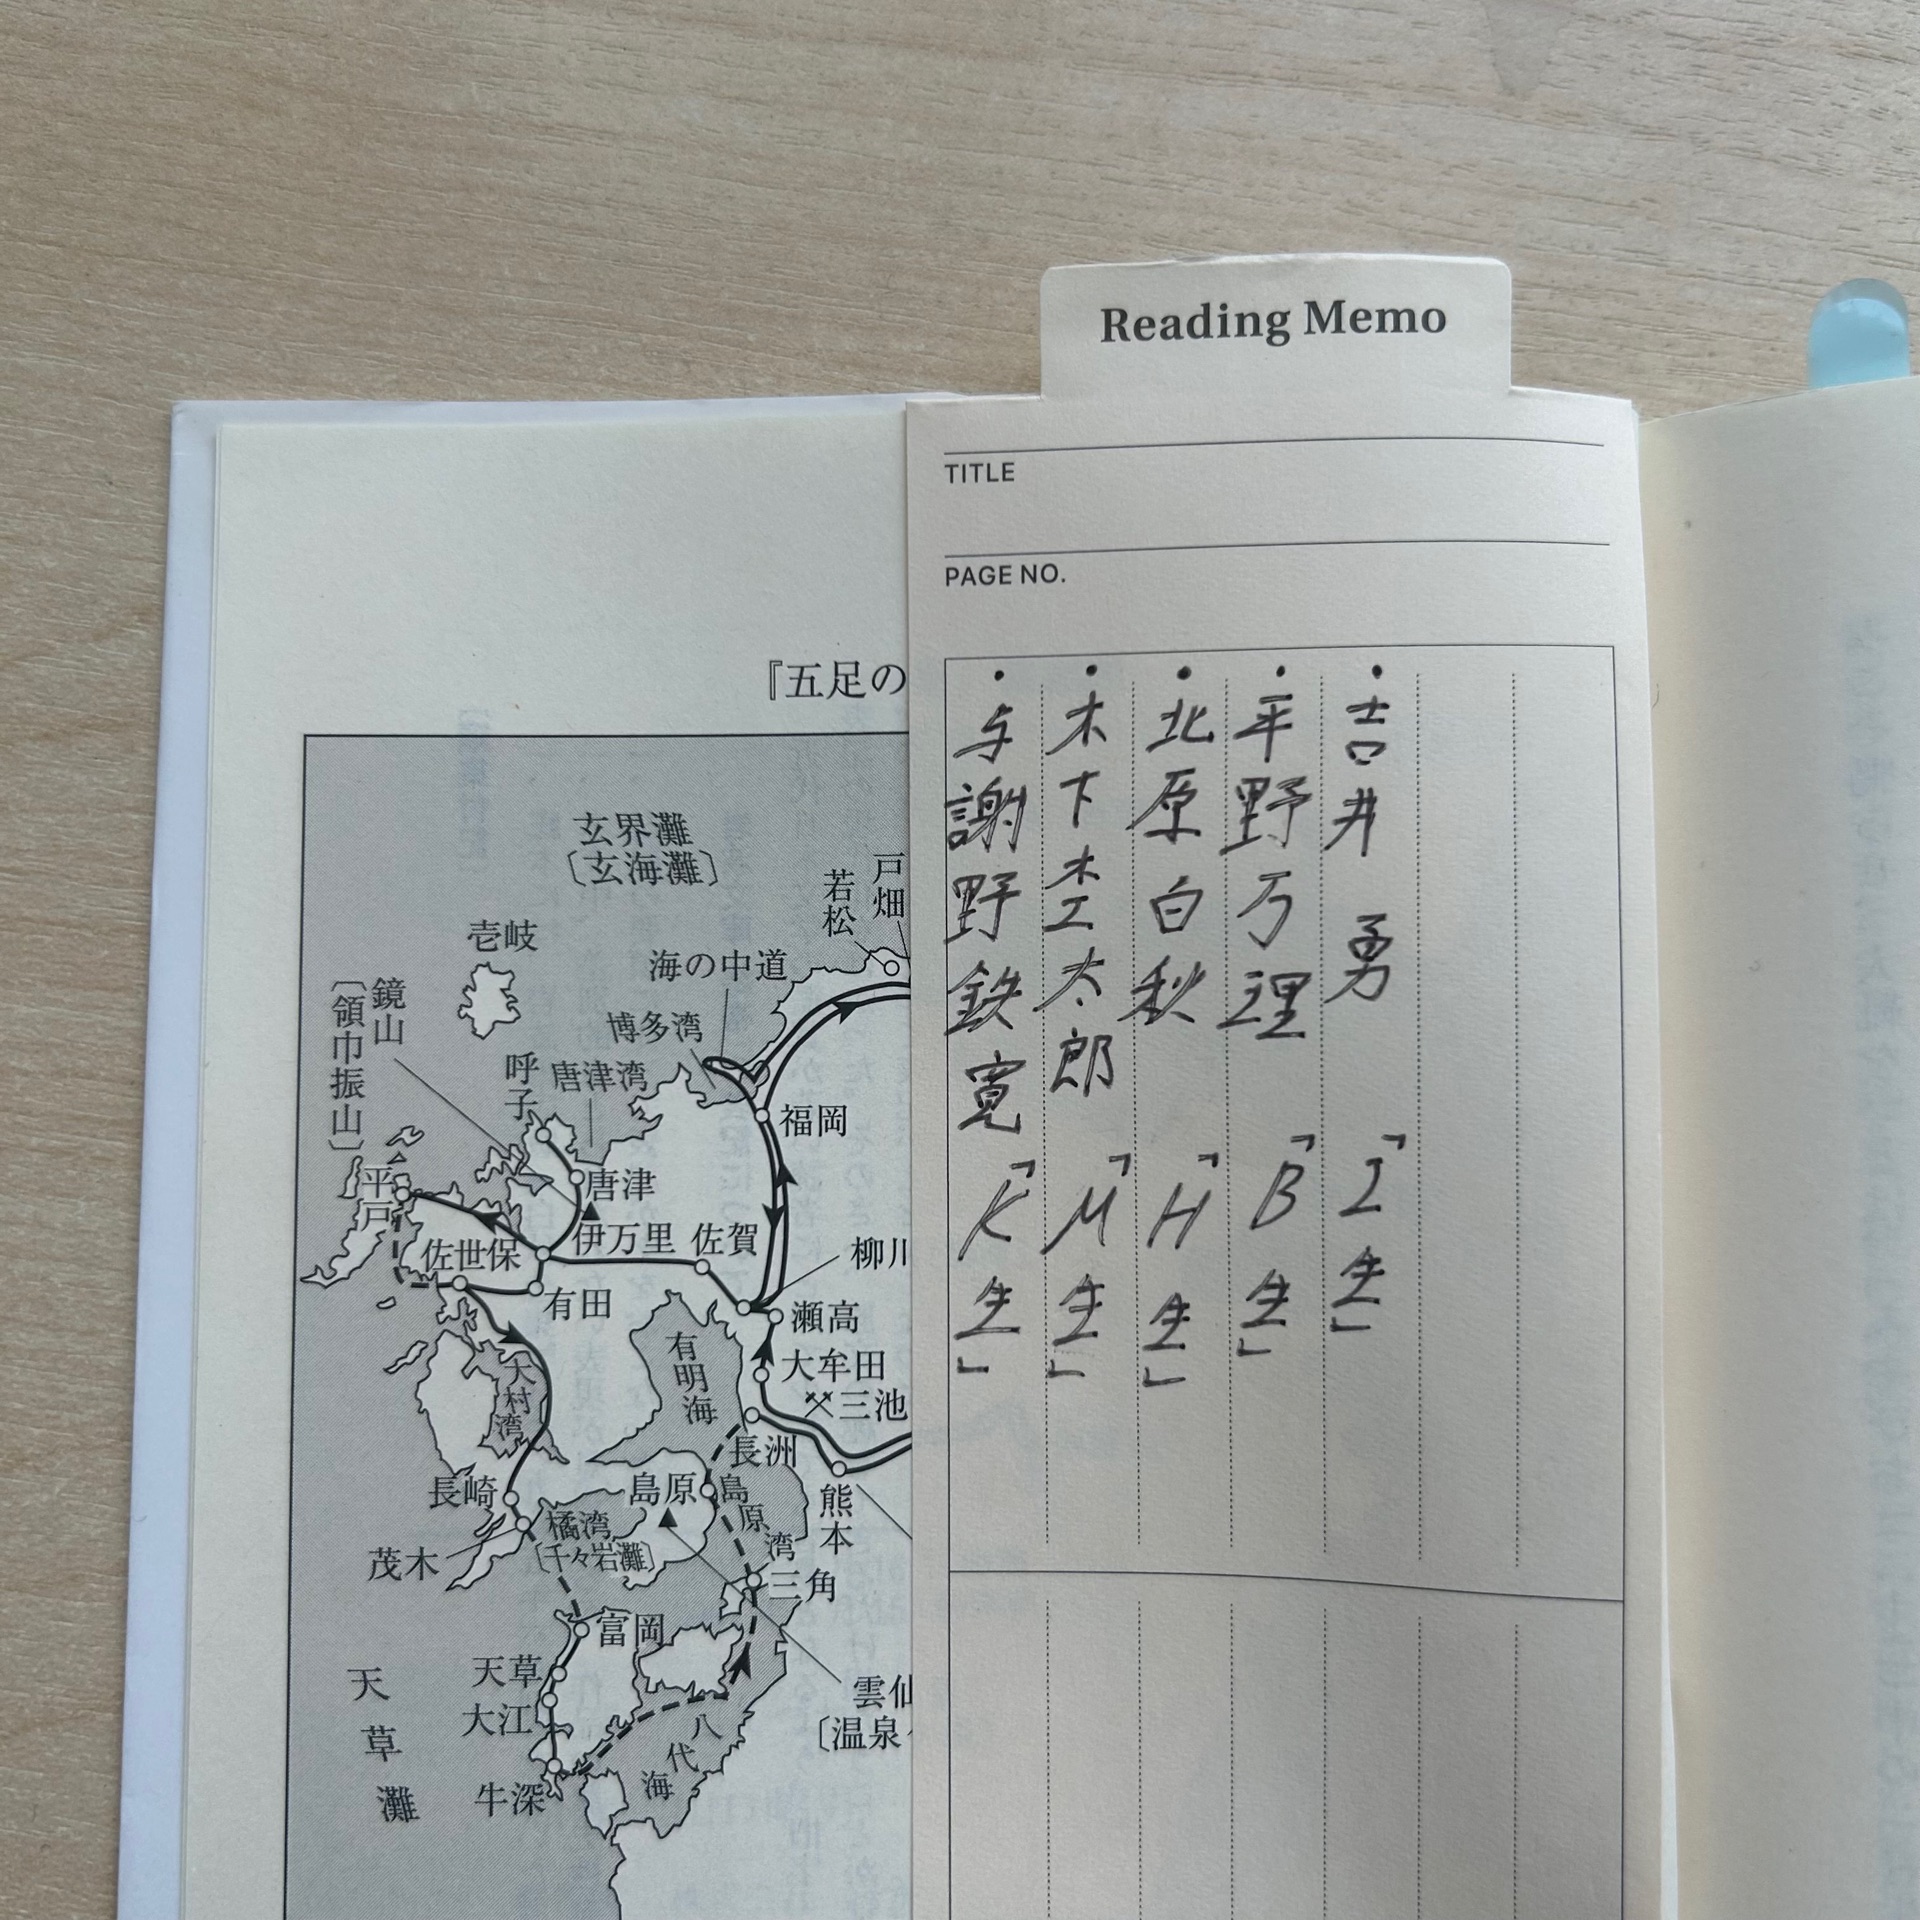 Reading Memo
TITLE
PAGE NO.
・与謝野鉄寛「K生」
・木下杢太郎「M生」
・北原白秋「H生」
・平野万理「B生」
・吉井 勇「I生」
『五足の
玄界灘
〔玄海灘〕
戸畑
若松
壱岐
海の中道
鏡山
〔領巾振山〕
博多湾
呼子
唐津湾
福岡
平戸
唐津
伊万里
佐賀
佐世保
柳川
有田
瀬高
有明海
大牟田
三池
大村湾
長洲
長崎
島原
島原湾
熊本
橘湾
〔千々岩灘〕
茂木
三角
富岡
天草
大江
雲仙
〔温泉
天草灘
八代海
牛深